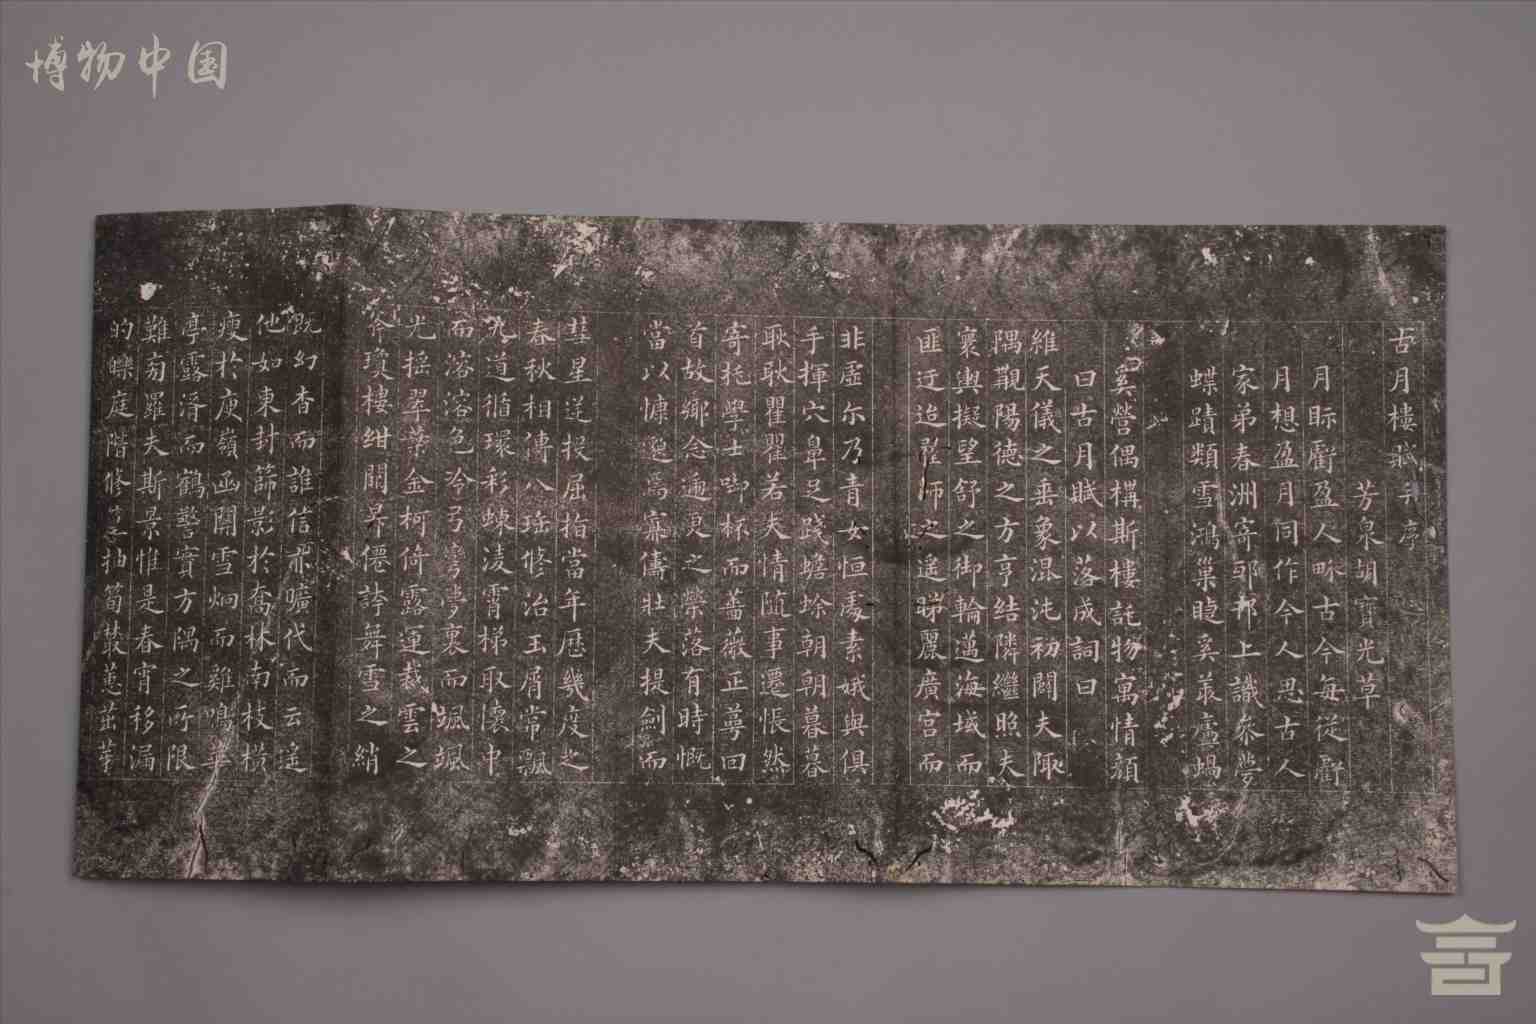 博物中国
古月樓賦并序
芳泉胡寶光草
月眎虧盈人㫰古今每從虧
月想盈月同作今人思古人
家弟春洲寄邗上識叅夢
蝶蹟類雪鴻巢睫奚叢廬蝸
奚營偶構斯樓託物寓情顏
曰古月賦以落成詞曰
維天儀之垂象混沌初闢夫陬
隅觀陽德之方亨結隣繼照夫
寰輿擬望舒之御輪邁海域而
匪迂迨羅師之遥睇麗廣宫而
非虛尓乃青女恒處素娥與俱
手揮穴鼻足踐蟾蜍朝朝暮暮
耿耿瞿瞿若夫情隨事遷悵然
寄托學士啣杯而薔薇正蕚回
首故鄉念遍夐之榮落有時慨
當以慷邈焉寡儔壯夫提劍而
彗星送授屈指當年歷幾度之
春秋相傳八珤修治玉屑常飄
九道循環彩蝀淩霄梯取懷中
而溶溶色冷弓彎夢裏而颯颯
光摇翠葉金柯倚露運裁雲之
斧瓊樓紺闕昇僊誇舞雪之綃
慨幻杳而誰信亦曠代而云遥
他如東封篩影於喬林南枝橫
瘦於庾嶺函關雪炯而雞鳴華
亭露湑而鶴警實方隅之所限
難䓑羅夫斯景惟是春宵移漏
的皪庭階修 抽筍 蕙茁華